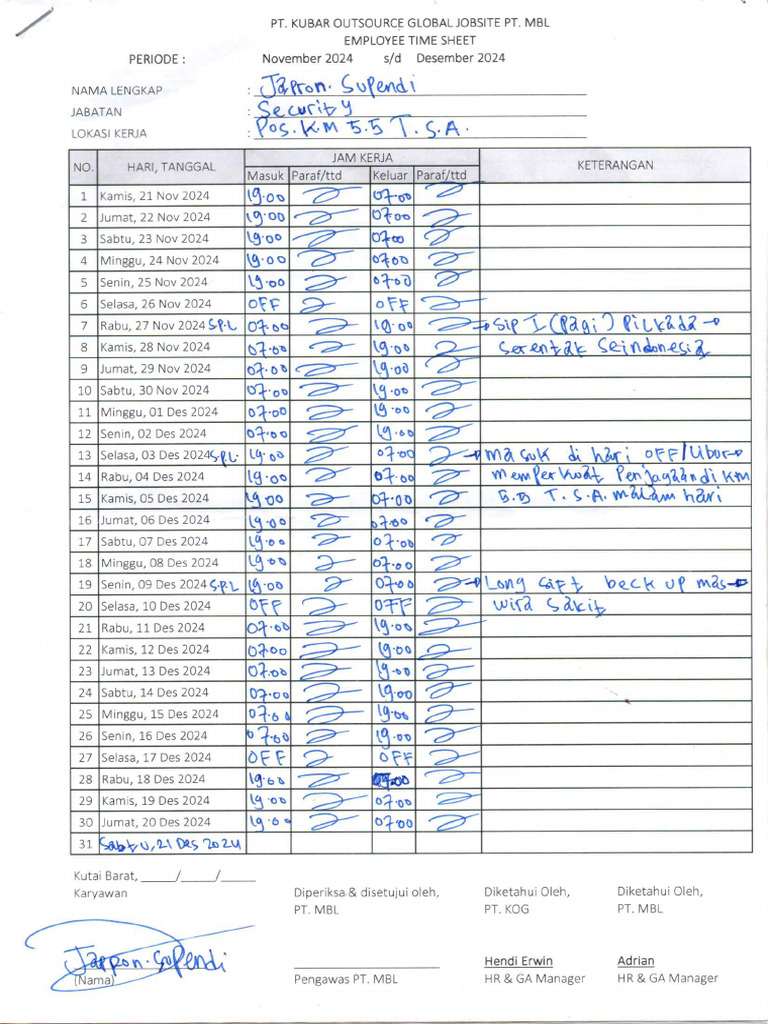 PT. KUBAR OUTSOURCE GLOBAL JOBSITE PT. MBL
EMPLOYEE TIME SHEET
PERIODE : November 2024 s/d Desember 2024
NAMA LENGKAP : Japron. Supendi
JABATAN : Security
LOKASI KERJA : Pos. K.M 5.5 T.S.A.
NO. HARI, TANGGAL JAM KERJA KETERANGAN
Masuk Paraf/ttd Keluar Paraf/ttd
1 Kamis, 21 Nov 2024 19.00 07.00
2 Jumat, 22 Nov 2024 19.00 07.00
3 Sabtu, 23 Nov 2024 19.00 07.00
4 Minggu, 24 Nov 2024 19.00 07.00
5 Senin, 25 Nov 2024 19.00 07.00
6 Selasa, 26 Nov 2024 OFF OFF
7 Rabu, 27 Nov 2024 S.P.L 07.00 19.00 Sip I (Pagi) Pilkada
8 Kamis, 28 Nov 2024 07.00 19.00 Serentak Seindonesia
9 Jumat, 29 Nov 2024 07.00 19.00
10 Sabtu, 30 Nov 2024 07.00 19.00
11 Minggu, 01 Des 2024 07.00 19.00
12 Senin, 02 Des 2024 07.00 19.00
13 Selasa, 03 Des 2024 S.P.L. 19.00 07.00 masuk di hari OFF/Libur
14 Rabu, 04 Des 2024 19.00 07.00 memperkuat Penjagaan di KM
15 Kamis, 05 Des 2024 19.00 07.00 5.5 T.S.A. malam hari
16 Jumat, 06 Des 2024 19.00 07.00
17 Sabtu, 07 Des 2024 19.00 07.00
18 Minggu, 08 Des 2024 19.00 07.00
19 Senin, 09 Des 2024 S.P.L 19.00 07.00 Long saft beck up mas
20 Selasa, 10 Des 2024 OFF OFF wira sakit
21 Rabu, 11 Des 2024 07.00 19.00
22 Kamis, 12 Des 2024 07.00 19.00
23 Jumat, 13 Des 2024 07.00 19.00
24 Sabtu, 14 Des 2024 07.00 19.00
25 Minggu, 15 Des 2024 07.00 19.00
26 Senin, 16 Des 2024 07.00 19.00
27 Selasa, 17 Des 2024 OFF OFF
28 Rabu, 18 Des 2024 19.00 07.00
29 Kamis, 19 Des 2024 19.00 07.00
30 Jumat, 20 Des 2024 19.00 07.00
31 Sabtu, 21 Des 2024
Kutai Barat, _____/_____/_____
Karyawan Diperiksa & disetujui oleh, Diketahui Oleh, Diketahui Oleh,
PT. MBL PT. KOG PT. MBL
Jappon. Supendi Hendi Erwin Adrian
(Nama) Pengawas PT. MBL HR & GA Manager HR & GA Manager